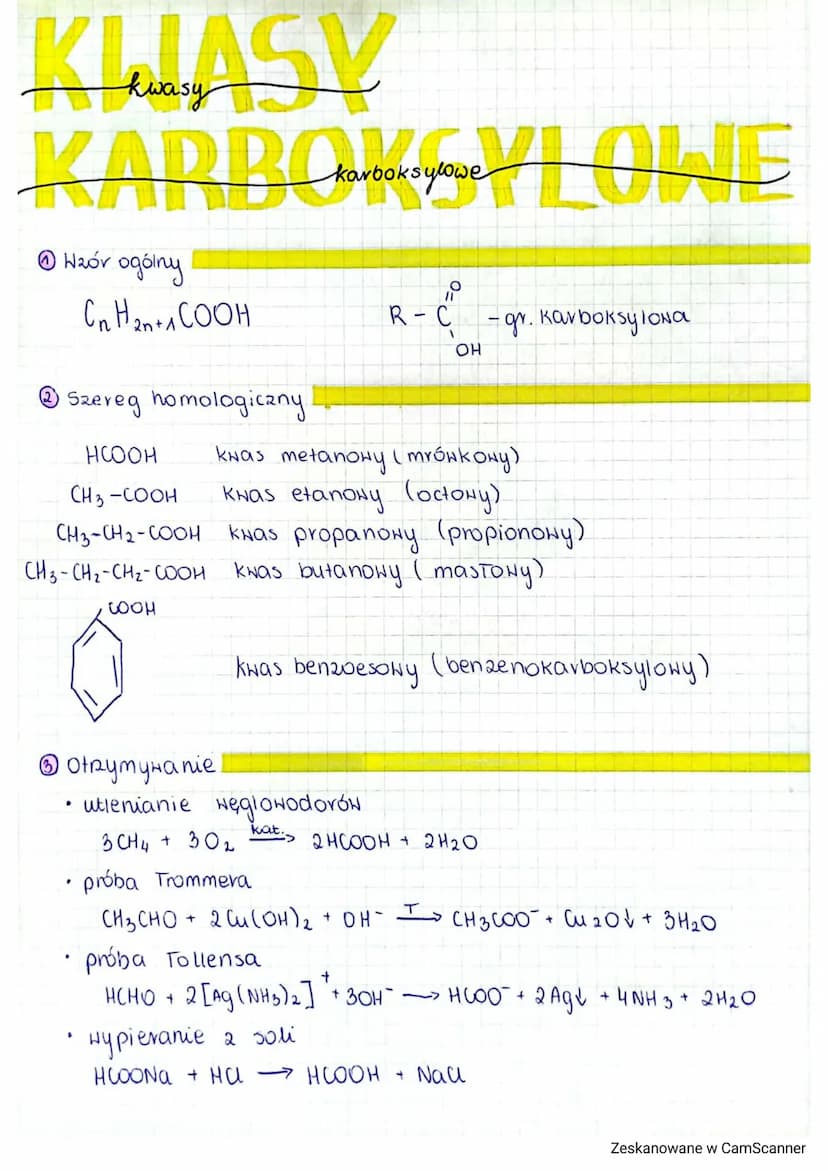 KWASY
kwasy
KARBOKSYLOWE
karboksylowe
① Wzór ogólny
CₙH₂ₙ₊₁COOH
O
R - C - gr. karboksylowa
OH
② Szereg homologiczny
HCOOH kwas metanowy (mrówkowy)
CH₃-COOH kwas etanowy (octowy)
CH₃-CH₂-COOH kwas propanowy (propionowy)
CH₃-CH₂-CH₂-COOH kwas butanowy (masłowy)
COOH
kwas benzoesowy (benzenokarboksylowy)
③ Otrzymywanie
• utlenianie węglowodorów
3CH₄ + 3O₂ kat.→ 2HCOOH + 2H₂O
• próba Trommera
CH₃CHO + 2Cu(OH)₂ + OH⁻ T→ CH₃COO⁻ + Cu₂O↓ + 3H₂O
• próba Tollensa
HCHO + 2[Ag(NH₃)₂]⁺ + 3OH⁻ → HCOO⁻ + 2Ag↓ + 4NH₃ + 2H₂O
• wypieranie z soli
HCOONa + HCl → HCOOH + NaCl
Zeskanowane w CamScanner